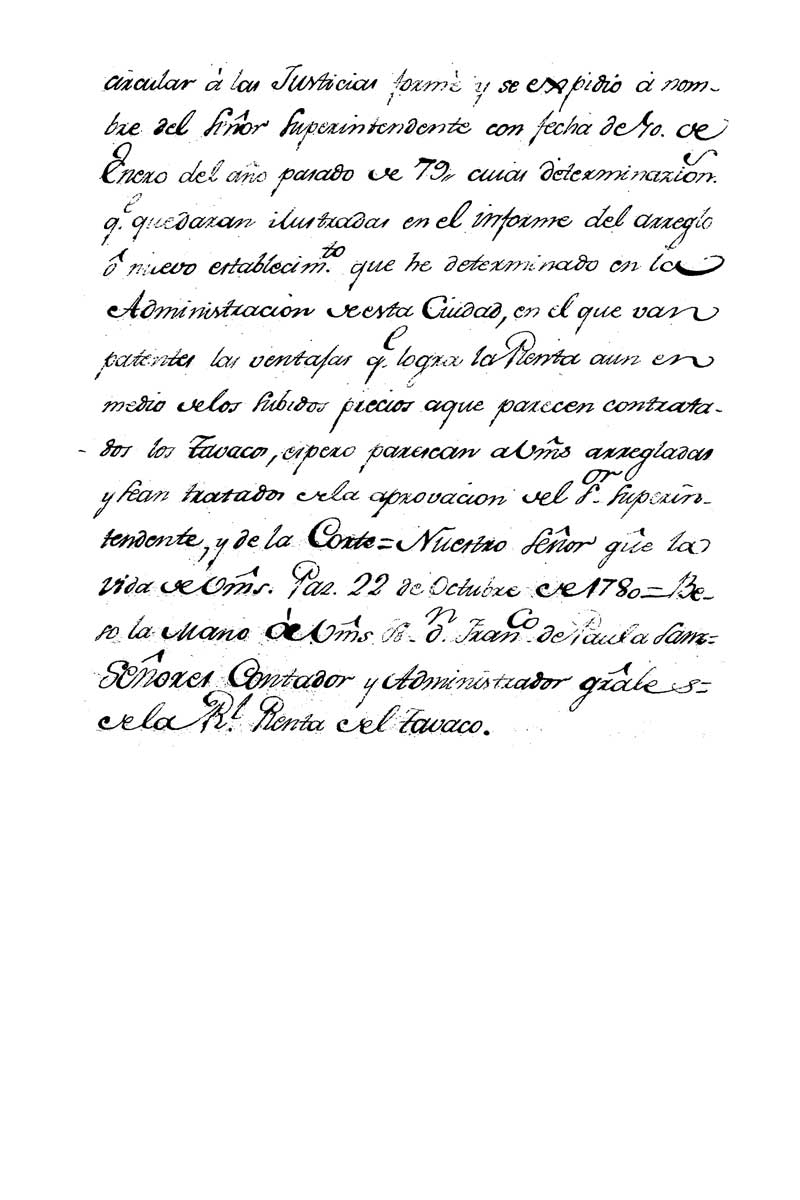 circular á las Justicias formé y se expidió á nom-
bre del Señor Superintendente con fecha de 10. de
Enero del año pasado de 79,, cuias determinazion.s
q.e quedaran ilustradas en el informe del arreglo
ó nuevo establecim.to que he determinado en la
Administracion de esta Ciudad, en el que van
patentes las ventajas q.e logra la Renta aun en
medio delos subidos precios aque parecen contrata-
dos los Tavacos, espero parescan a Vm̃s arregladas
y sean tratados dela aprovacion del S.or Superin-
tendente, y de la Corte = Nuestro Señor gũe la
vida de Vm̃s. Paz. 22 de Octubre de 1780 = Be-
so la Mano de Vm̃s d.n Fran.co de Paula Sanz=
Señores Contador y Administrador grãles=
dela R.l Renta del Tavaco.